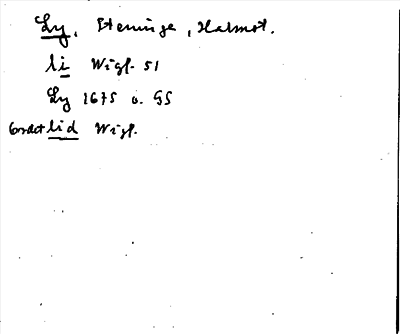 Ly, Steninge, Halmst.
li Wigf. 51
Ly 1675 o. GS
lid Wigf.